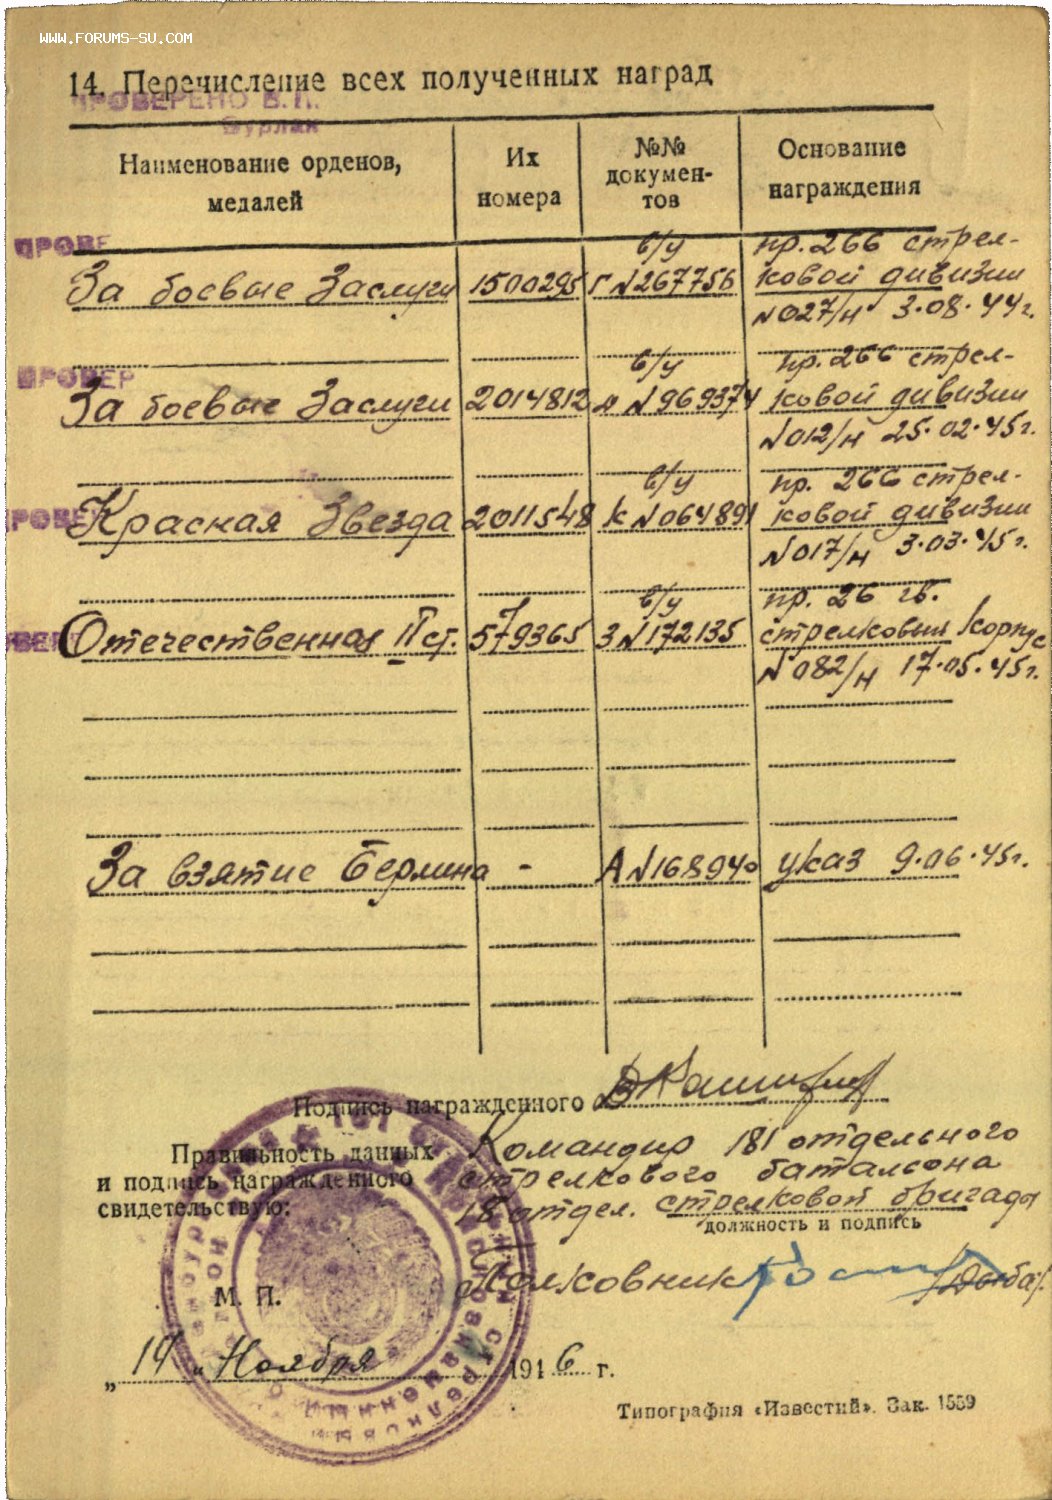 WWW.FORUMS-SU.COM
14. Перечисление всех полученных наград
ПРОВЕРЕНО В.П.
Бурлак
Наименование орденов, медалей
Их номера
№№ документов
Основание награждения
ПРОВЕ
За боевые Заслуги 1500295 Г №267756 пр. 266 стрел-
в/у
ковой дивизии
№027/н 3.08.44г.
ПРОВЕР
За боевые Заслуги 2014812 №969374 пр. 266 стрел-
в/у
ковой дивизии
№012/н 25.02.45г.
ПРОВЕР
Красная Звезда 2011548 К №064891 пр. 266 стрел-
в/у
ковой дивизии
№017/н 3.03.45г.
Отечественная II ст. 579365 З №172135 пр. 26 гв.
в/у
стрелковый корпус
№082/н 17.05.45г.
За взятие Берлина - А №168940 указ 9.06.45г.
Подпись награжденного
Правильность данных
и подпись награжденного
свидетельствую:
Командир 181 отдельного
стрелкового батальона
18 отдел. стрелковой бригады
должность и подпись
Полковник
М. П.
„19„ Ноября 1946 г.
Типография «Известий». Зак. 1559